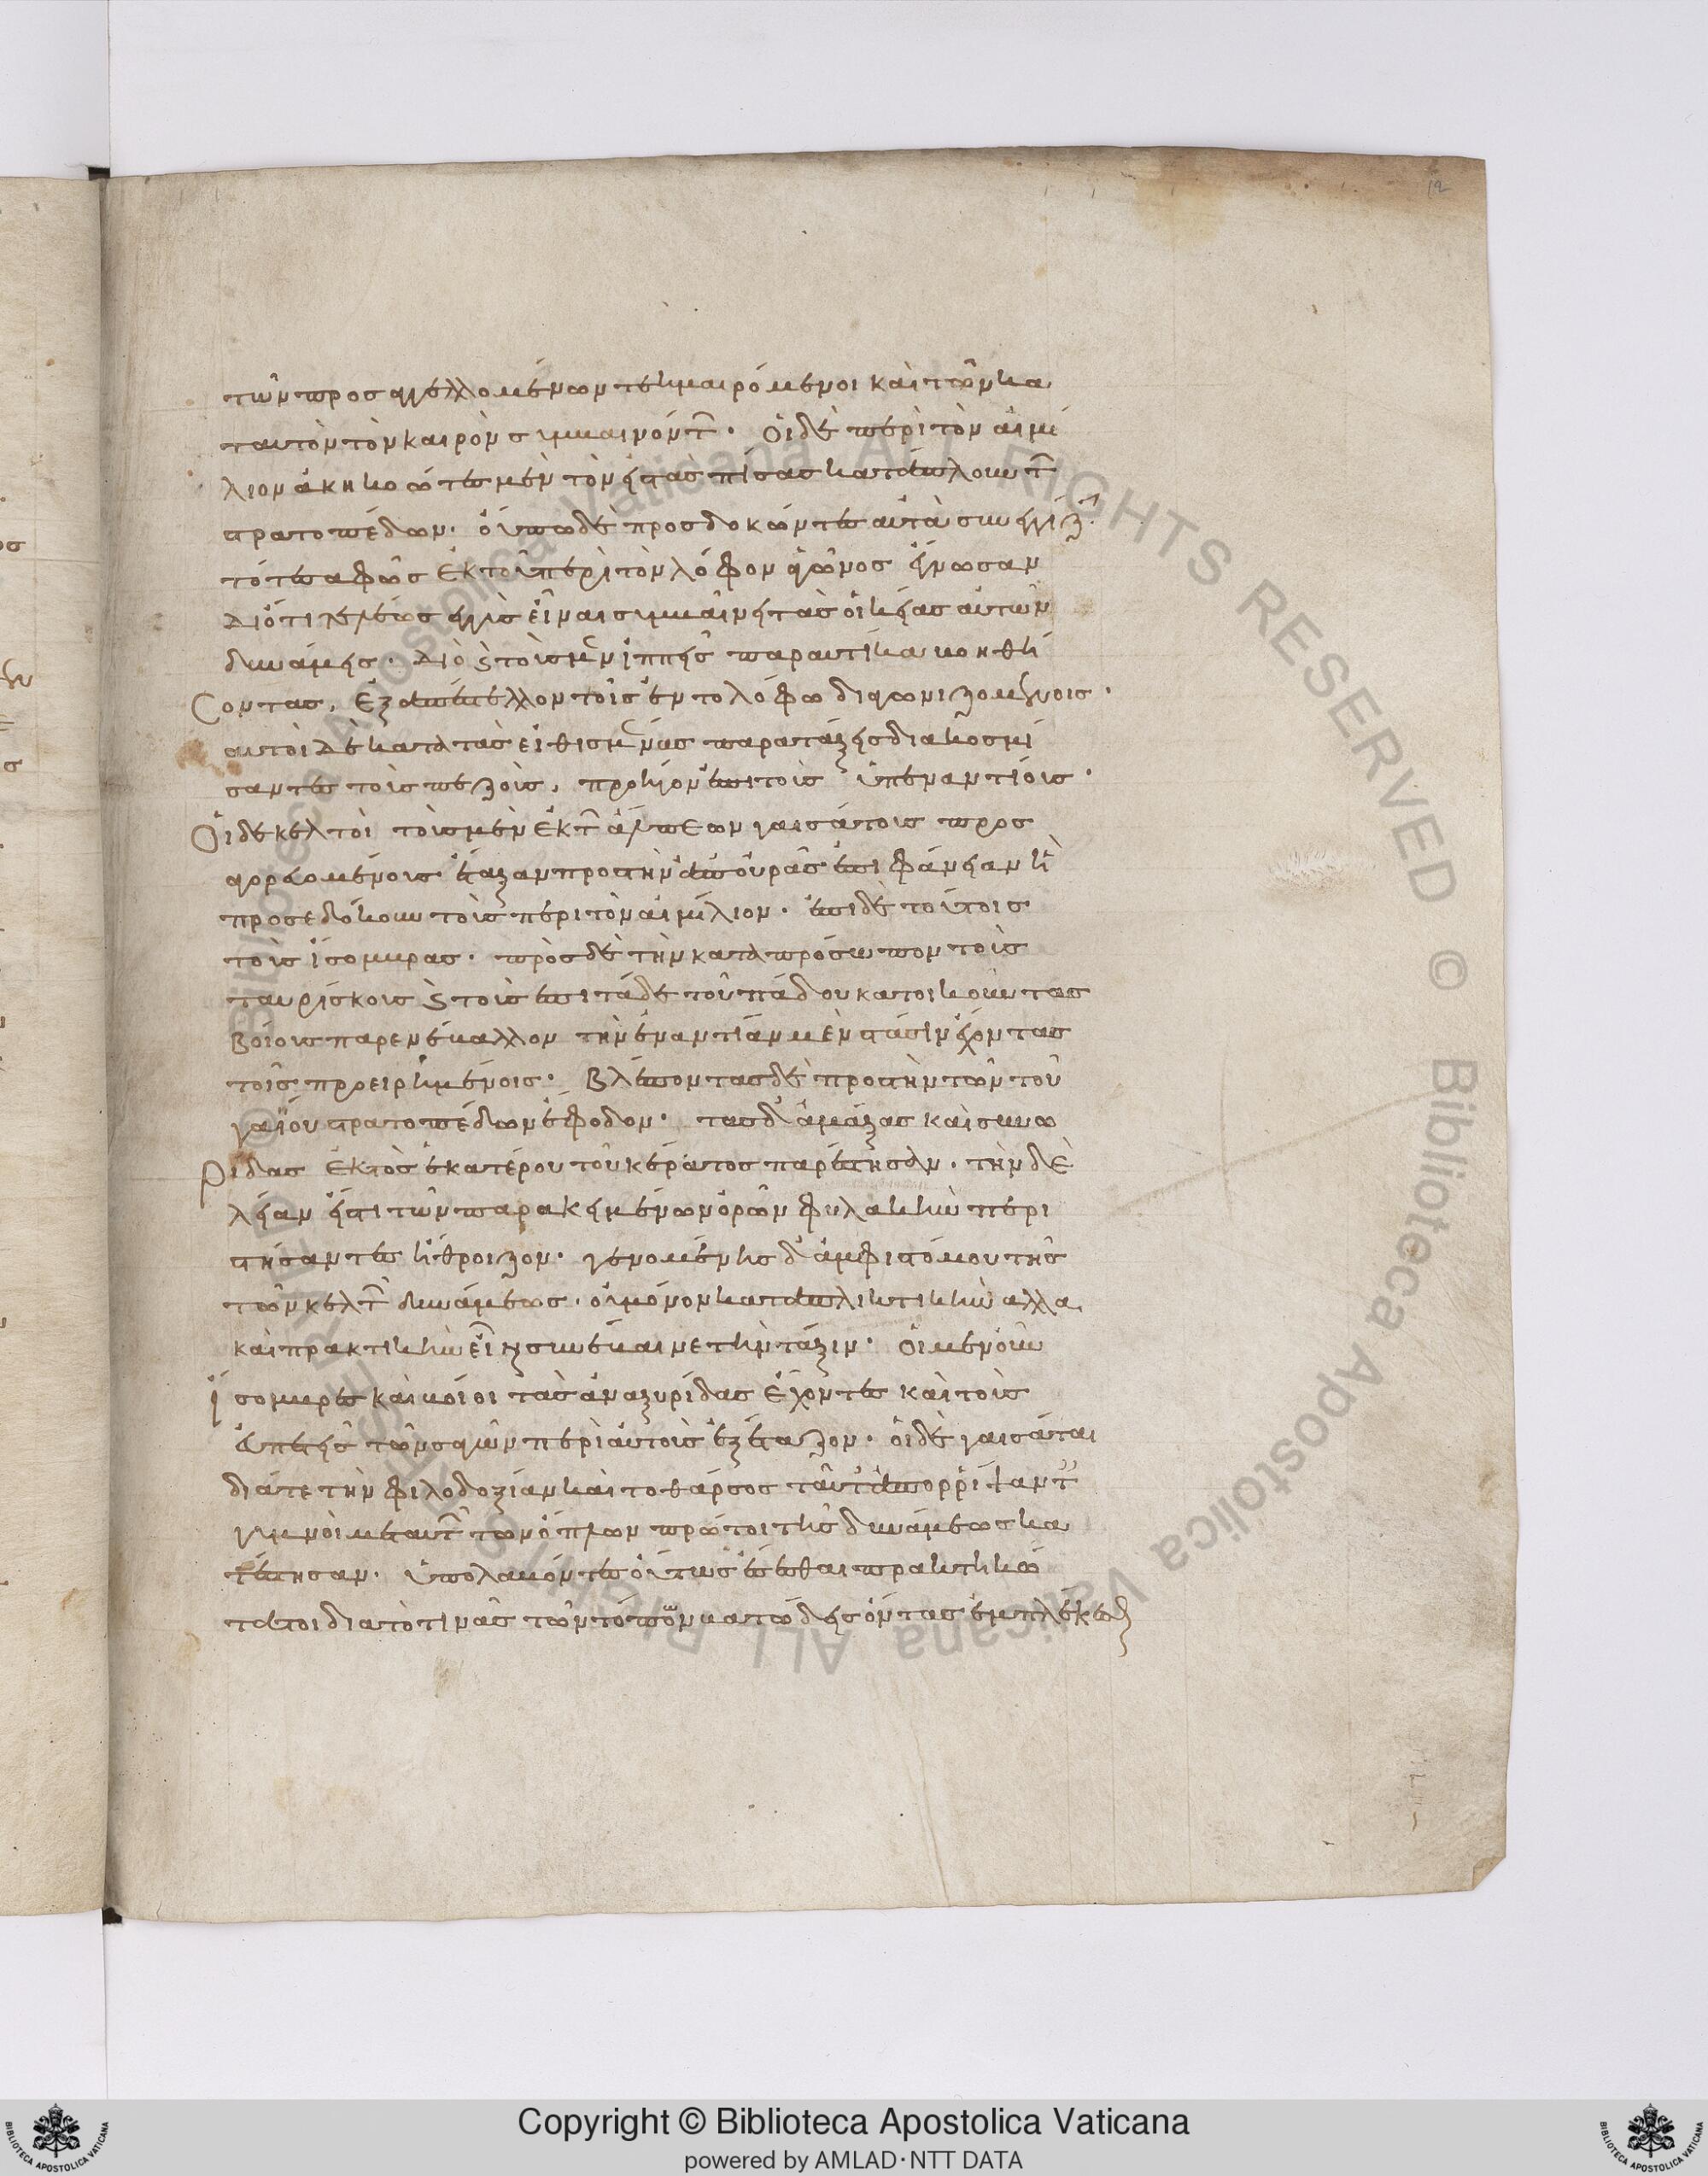 τῶν προσαγγελλομένων τεκμαιρόμενοι καὶ τῶν κα
ταυτὸν τὸν καιρὸν συμβαινόντων. οἱ δὲ περὶ τὸν αἰμί
λιον ἀκηκοότες μὲν τὸν εἰς τὰς πίσας κατάπλουν τῶν
στρατοπέδων. οὔπω δὲ προσδοκῶντες αὐτὰ συνεγγίζειν.
τότε σαφῶς ἐκ τοῦ περὶ τὸν λόφον ἀγῶνος ἔγνωσαν
διότι τελέως ἐγγὺς εἶναι συμβαίνει τὰς οἰκείας αὐτῶν
δυνάμεις. διὸ καὶ τοὺς μὲν ἱππεῖς παραυτίκα βοηθή
σοντας, ἐξαπέστελλον τοῖς ἐν τῶ λόφω διαγωνιζομένοις.
αὐτοὶ δὲ κατὰ τὰς εἰθισμένας παρατάξεις διακοσμή
σαντες τοὺς πεζοὺς, προῆγον ἐπὶ τοὺς ὑπεναντίους.
Οἱ δὲ κελτοὶ τοὺς μὲν ἐκ τῶν ἄλπεων γαισάτους προσ
αγορευομένους ἔταξαν πρὸς τὴν ἀπ οὐρᾶς ἐπιφάνειαν ἧ
προσεδόκουν τοὺς περὶ τὸν αἰμίλιον. ἐπὶ δὲ τούτοις
τοὺς ἰσόμβρας. πρὸς δὲ τὴν κατὰ πρόσωπον τοὺς
ταυρίσκους καὶ τοὺς ἐπὶ τάδε τοῦ πάδου κατοικοῦντας
βοίους παρενέβαλλον τὴν ἐναντίαν μὲν στάσιν ἔχοντας
τοῖς προειρημένοις. βλέποντας δὲ πρὸς τὴν τῶν τοῦ
γαΐου στρατοπέδων ἔφοδον. τὰς δ' ἁμάξας καὶ συνω
ρίδας ἐκτὸς ἑκατέρου τοῦ κέρατος παρέστησαν. τὴν δὲ
λείαν εἴς τι τῶν παρακειμένων ὀρῶν φυλακὴν περι
στήσαντες ἤθροιζον. γενομένης δ' ἀμφιστόμου τῆς
τῶν κελτῶν δυνάμεως. οὐ μόνον καταπληκτικὴν ἀλλὰ
καὶ πρακτικὴν εἶναι συνέβαινε τὴν τάξιν. οἱ μὲν οὖν
ἰσόμβρες καὶ βόιοι τὰς ἀναξυρίδας ἔχοντες καὶ τοὺς
εὐπετεῖς τῶν σάγων περὶ αὐτοὺς ἐξέταζον. οἱ δὲ γαισάται
διά τε τὴν φιλοδοξίαν καὶ τὸ θάρσος ταῦτ' ἀπορρίψαντες
γυμνοὶ μετ αὐτῶν τῶν ὅπλων πρῶτοι τῆς δυνάμεως κα
τέστησαν. ὑπολαβόντες οὕτως ἔσεσθαι πρακτικώ
τατοι διὰ τὸ τινὰς τῶν τόπων βατώδεις ὄντας ἐμπλέκεσθαι